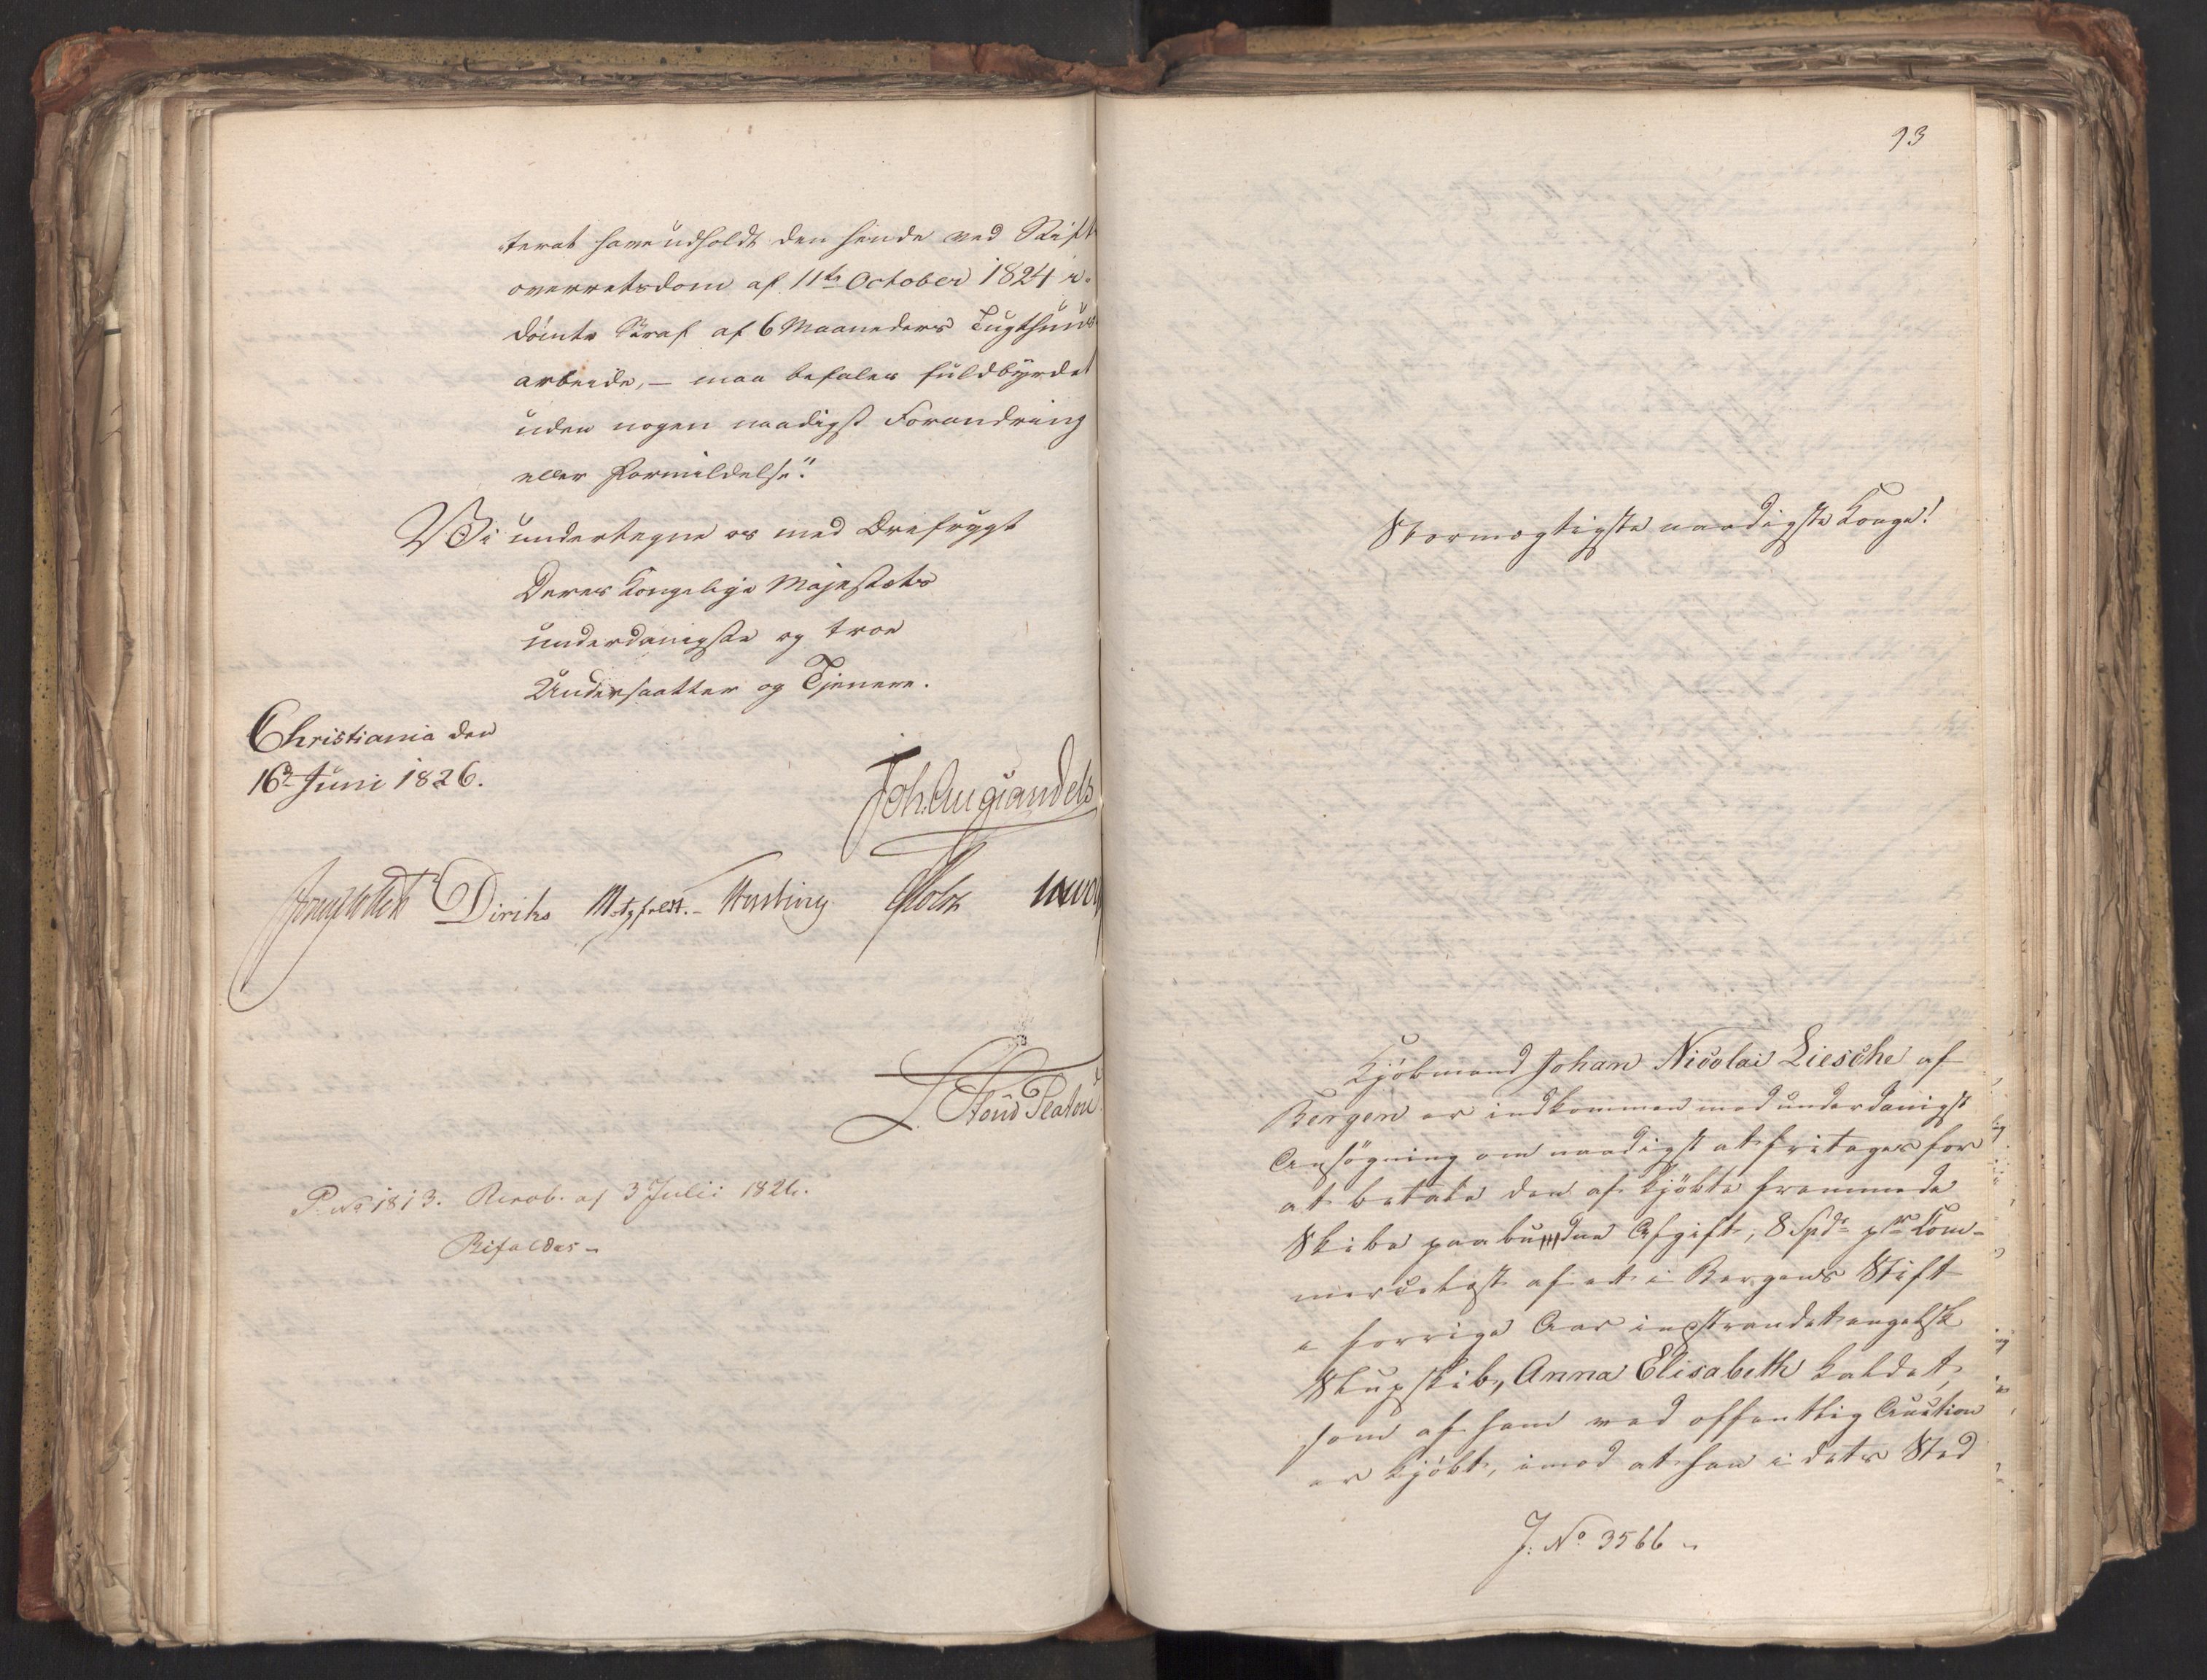 terat have udholdt den hende ved Stift
overretsdom af 11te October 1824 i
dömte Straf af 6 Maaneders Tugthuus
arbeide, – maa befales fuldbyrdet
uden nogen naadigst Forandring
eller Formildelse."
Vi undertegne os med Ærefrygt
Deres Kongelige Majestæts
underdanigste og troe
Undersaatter og Tjenere.
Christiania den
16de Juni 1826.
Joh. Aug Sandels
Diriks Motzfeldt. Holst
L. Stoud Platou
P. No 1813. Resol. af 3 Julii 1826.
Bifaldes –
93
Stormægtigste naadigste Konge!
Kjöbmand Johan Nicolai Liesche af
Bergen er indkommen med underdanigst
Ansögning om naadigst at fritages for
at betale den af kjöbte fremmede
Skibe paabudne Afgift, 8 Spdr pr Com-
mercelæst af et i Bergens Stift
i forrige Aar indstrandet engelsk
Slupskib, Anna Elisabeth kaldet,
som af ham ved offentlig Auction
er kjöbt, imod at han i dets Sted
J: No 3566 –